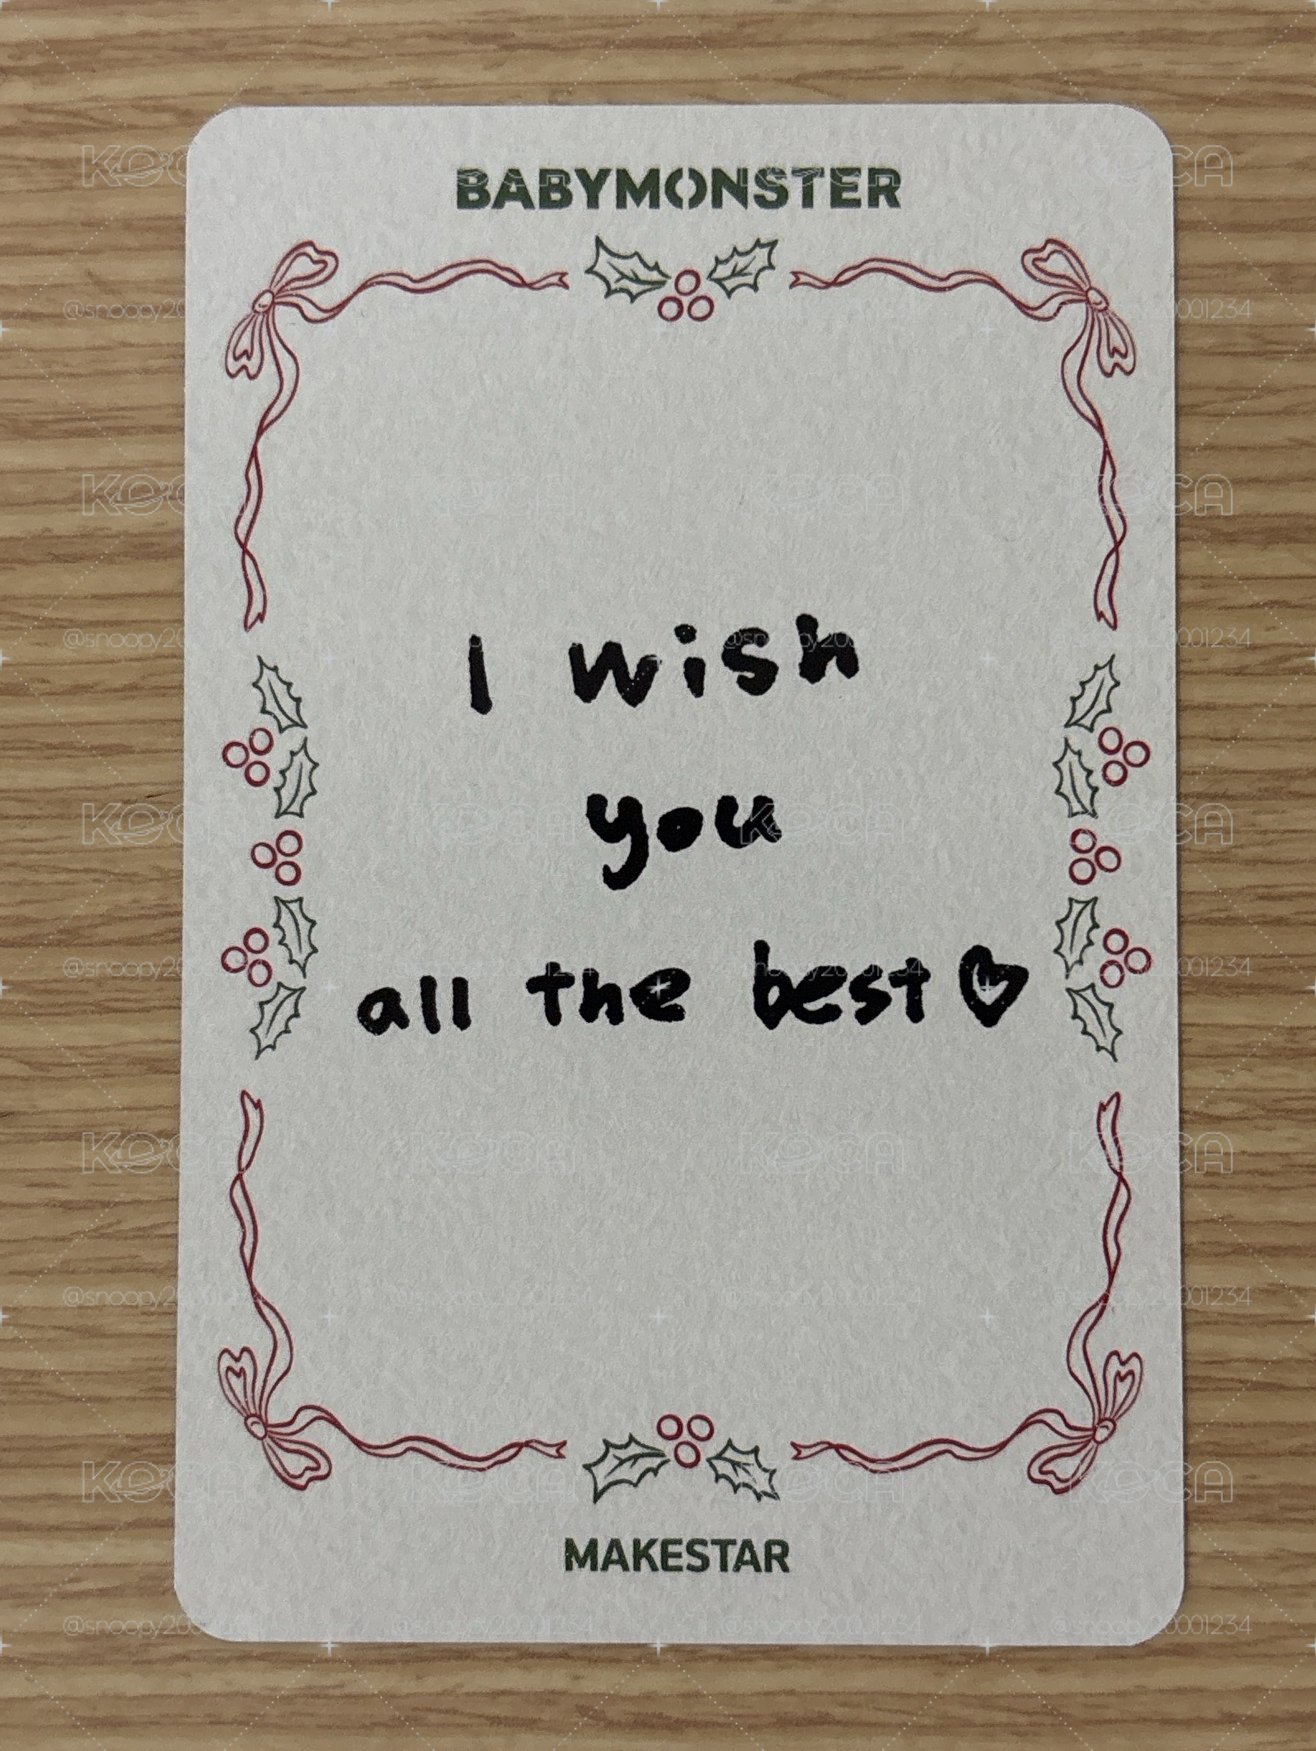 BABYMONSTER
I wish
you
all the best♡
MAKESTAR
KOCA
@snoopy20001234